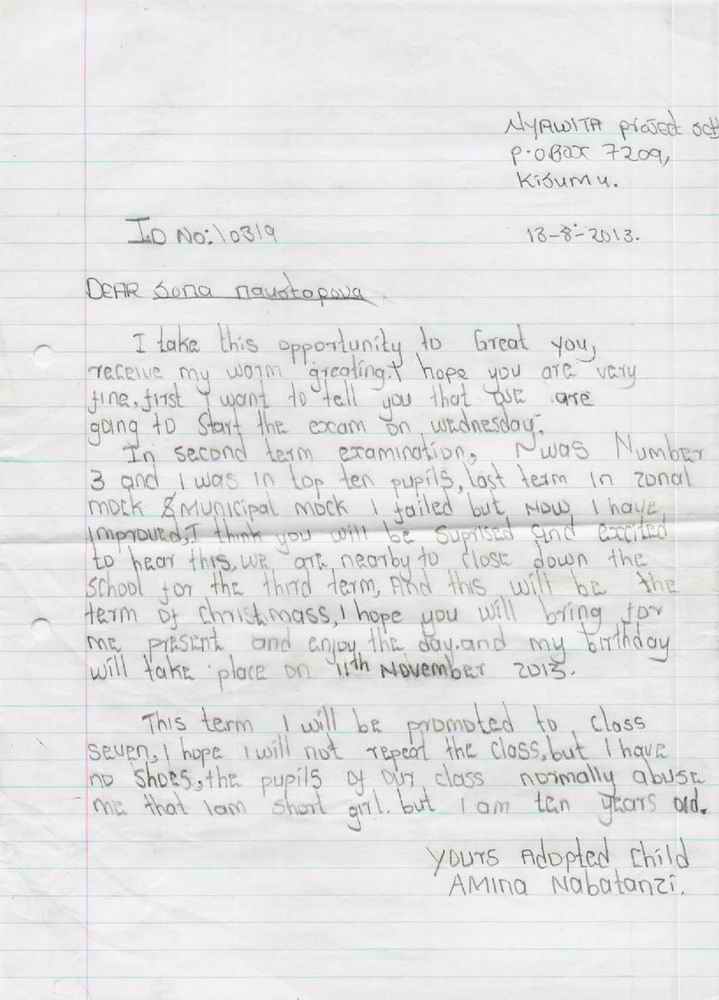 NYAWITA project
P.O BOX 7209,
Kisumu.
ID NO: 10319
13-8-2013.
DEAR
I take this opportunity to Great you,
receive my worm greating.I hope you are very
fine, first I want to tell you that we are
going to start the exam on wednesday.
In second term examination, was Number
3 and I was in top ten pupils, last term in zonal
mock & Municipal mock I failed but now I have
improved, I think you will be suprised and excited
to hear this, we are nearby to close down the
school for the third term, And this will be the
term of christmass, I hope you will bring for
me present and enjoy the day.and my birthday
will take place on 11th November 2013.
This term I will be promoted to class
seven, I hope I will not repeat the class, but I have
no shoes, the pupils of our class normally abuse
me that I am short girl. but I am ten years old.
YOURS Adopted Child
AMINA Nabatanzi.